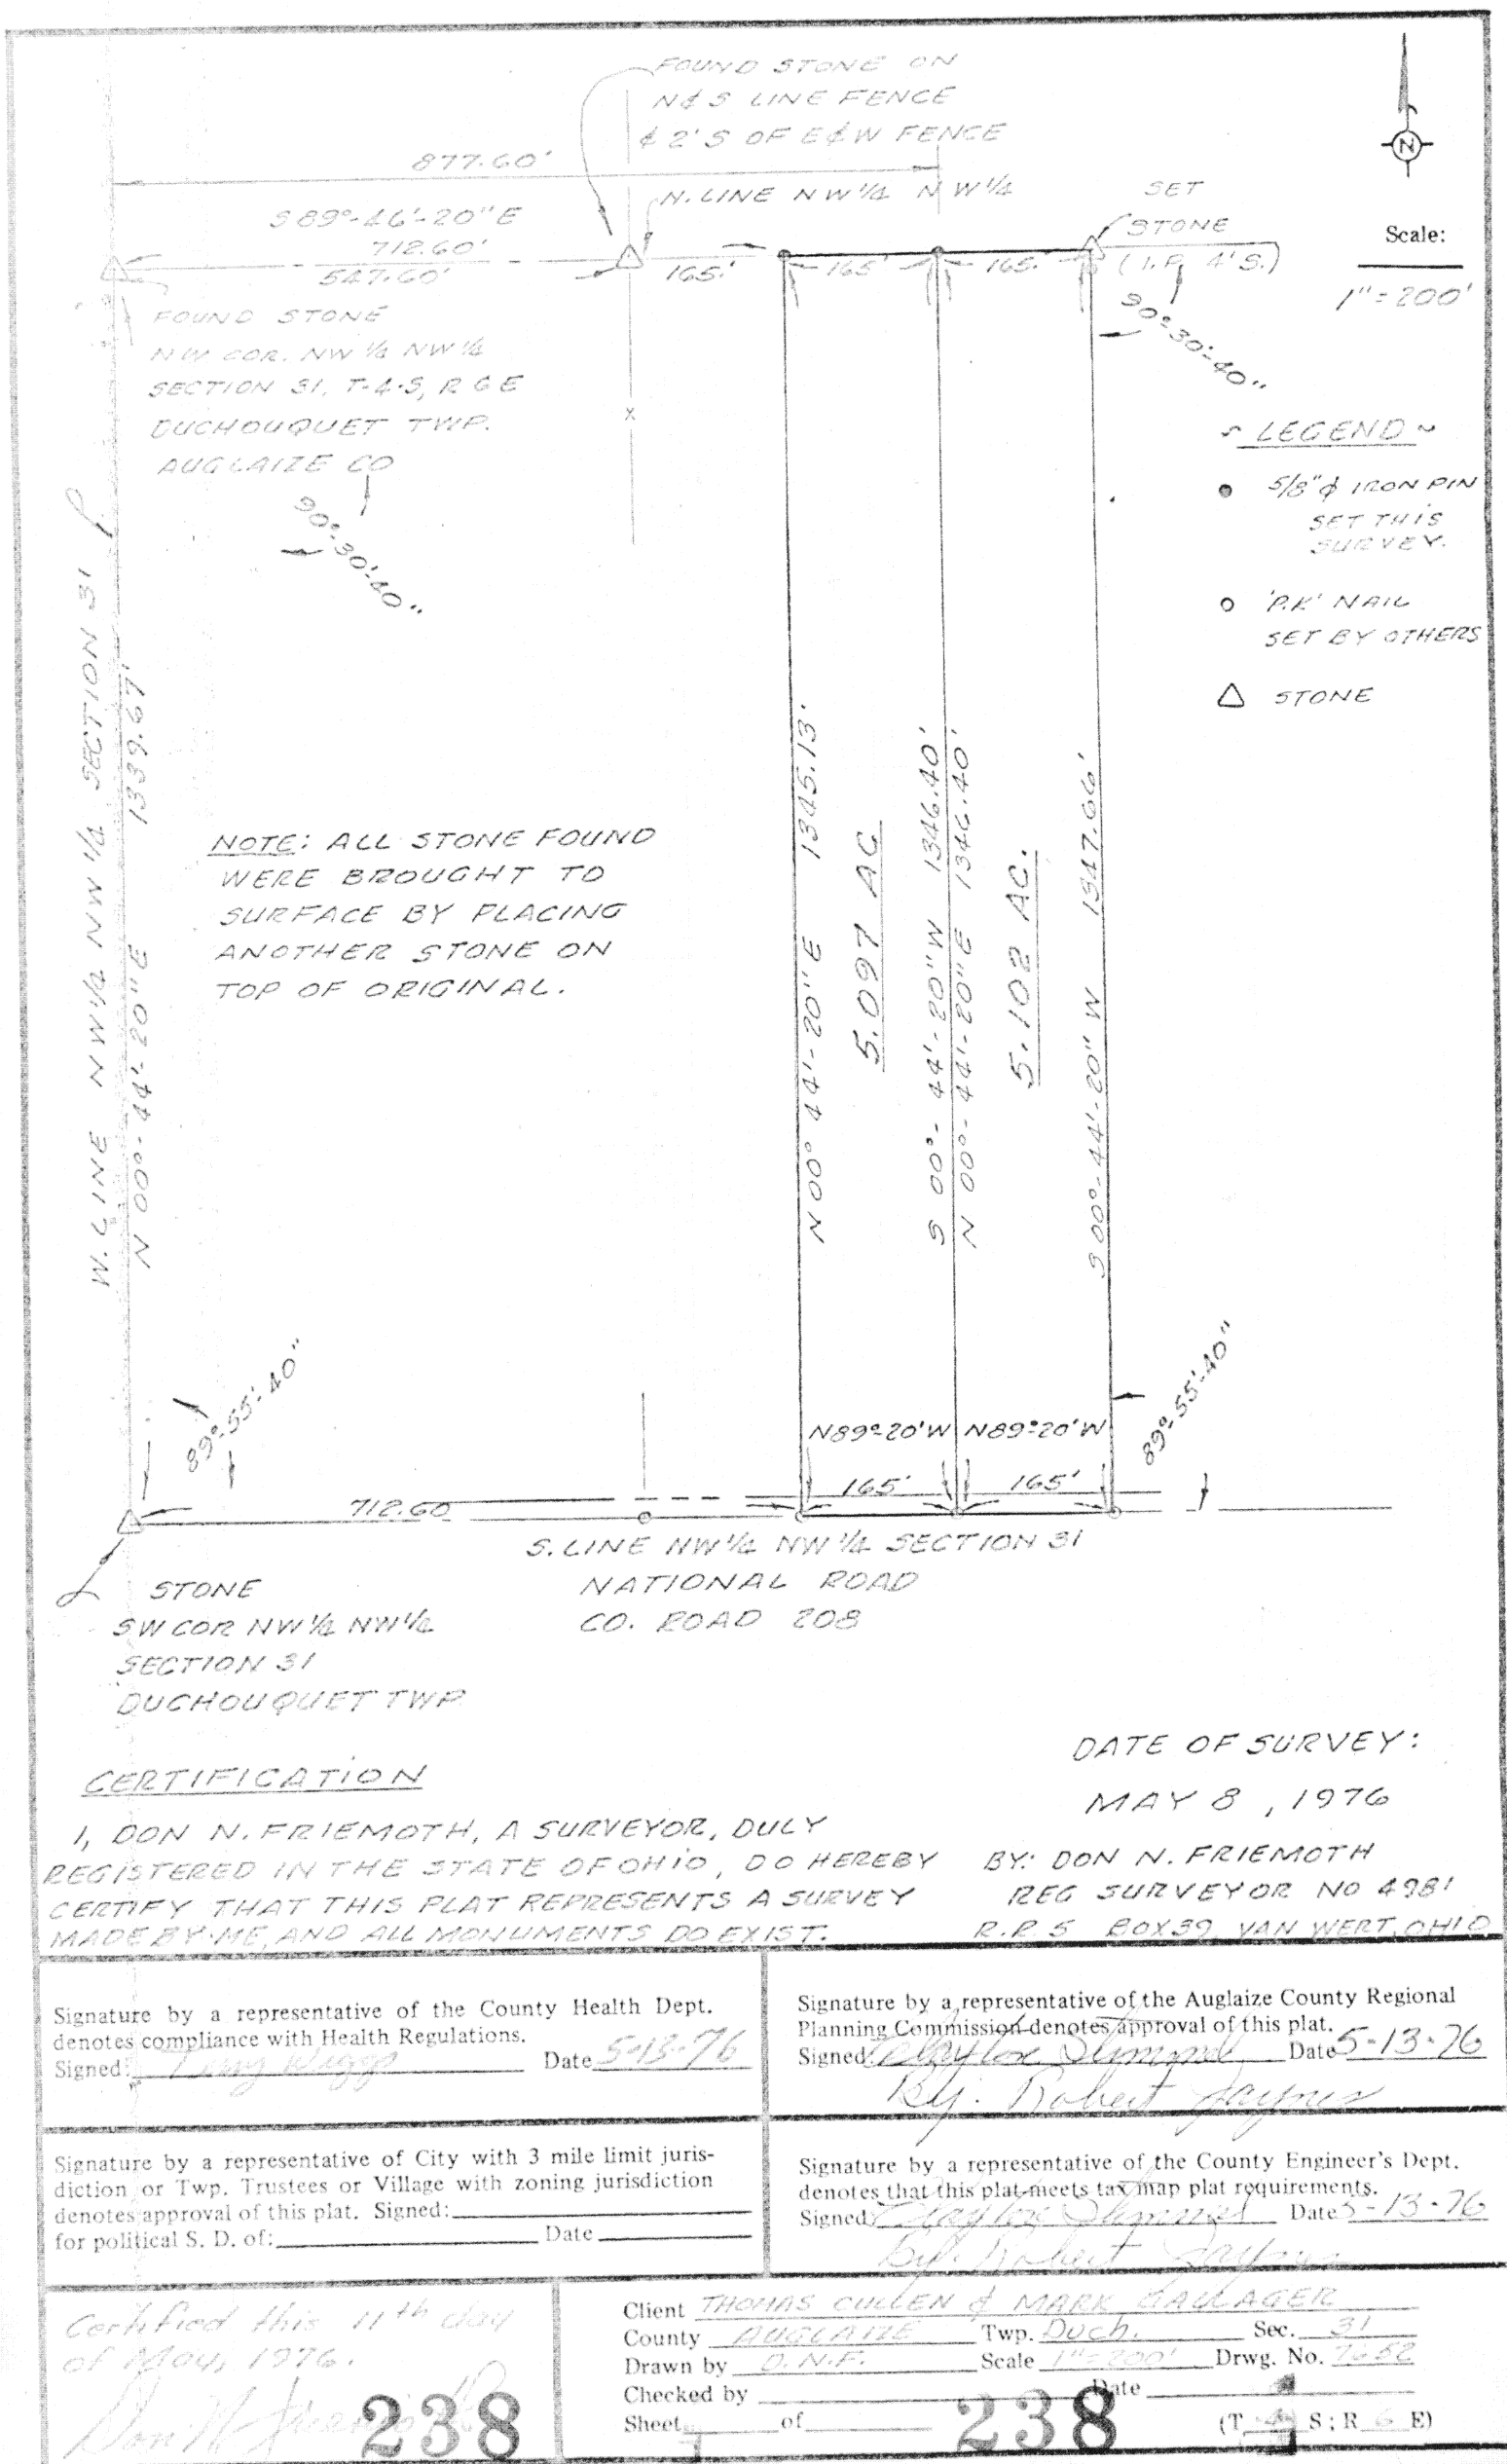 FOUND STONE ON
N&S LINE FENCE
& 2'S OF E&W FENCE
877.60'
N. LINE NW 1/4 NW 1/4
S 89°-46'-20" E
712.60'
547.60'
165.'
165'
165.'
SET
STONE
(I.P. 4'S.)
90°-30'-40"
N
Scale:
1" = 200'
FOUND STONE
NW COR. NW 1/4 NW 1/4
SECTION 31, T-4-S, R 6 E
DUCHOUQUET TWP.
AUGLAIZE CO
90°-30'-40"
~ LEGEND ~
5/8" ϕ IRON PIN
SET THIS
SURVEY.
'P.K' NAIL
SET BY OTHERS
STONE
W. LINE NW 1/4 NW 1/4 SECTION 31
N 00°-44'-20" E 1339.67'
NOTE: ALL STONE FOUND
WERE BROUGHT TO
SURFACE BY PLACING
ANOTHER STONE ON
TOP OF ORIGINAL.
N 00° 44'-20" E 1345.13'
5.097 AC
S 00°-44'-20" W 1346.40'
N 00°-44'-20" E 1346.40'
5.102 AC.
S 00°-44'-20" W 1347.66'
89°-55'-40"
89°-55'-40"
N89°20'W
N89°20'W
165'
165'
712.60
S. LINE NW 1/4 NW 1/4 SECTION 31
NATIONAL ROAD
CO. ROAD 208
STONE
SW COR NW 1/4 NW 1/4
SECTION 31
DUCHOUQUET TWP
DATE OF SURVEY:
MAY 8, 1976
CERTIFICATION
I, DON N. FRIEMOTH, A SURVEYOR, DULY
REGISTERED IN THE STATE OF OHIO, DO HEREBY
CERTIFY THAT THIS PLAT REPRESENTS A SURVEY
MADE BY ME, AND ALL MONUMENTS DO EXIST.
BY: DON N. FRIEMOTH
REG SURVEYOR NO 4981
R.R. 5 BOX 39 VAN WERT, OHIO
Signature by a representative of the County Health Dept.
denotes compliance with Health Regulations.
Signed: Date 5-13-76
Signature by a representative of the Auglaize County Regional
Planning Commission denotes approval of this plat.
Signed: Date 5-13-76
By: Robert Jaynes
Signature by a representative of City with 3 mile limit juris-
diction or Twp. Trustees or Village with zoning jurisdiction
denotes approval of this plat. Signed:
for political S. D. of: Date
Signature by a representative of the County Engineer's Dept.
denotes that this plat meets tax map plat requirements.
Signed: Date 5-13-76
By: Robert Jaynes
Certified this 11th day
of May, 1976.
238
Client THOMAS CULLEN & MARK GALLAGER
County AUGLAIZE Twp. Duch. Sec. 31
Drawn by D.N.F. Scale 1"=200' Drwg. No. 76-52
Checked by Date
Sheet of (T 4 S ; R 6 E)
238